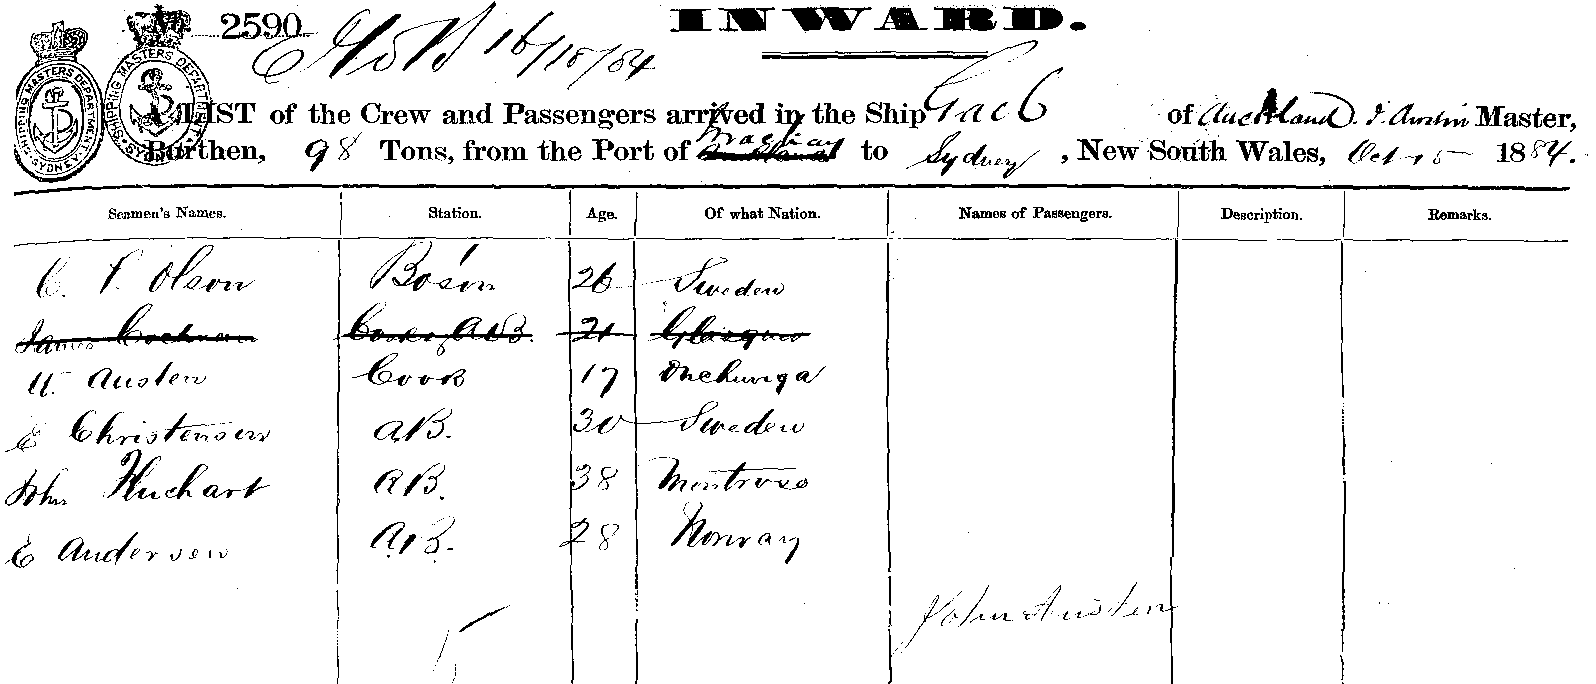 2590
INWARD.
16/10/84
SHIPPING MASTERS DEPARTMENT SYDNEY
LIST of the Crew and Passengers arrived in the Ship of Auckland. J. Austin Master,
Burthen, 98 Tons, from the Port of to Sydney, New South Wales, Oct 15 1884.
Seamen's Names. Station. Age. Of what Nation. Names of Passengers. Description. Remarks.
C. P. Olson Bos'n 26 Sweden
James Cochran Cook & AB. 21 Glasgow
Austen Cook 17 Onehunga
E Christensen AB. 30 Sweden
John AB. 38 Montrose
E Andersen AB. 28 Norway
John Austen
5